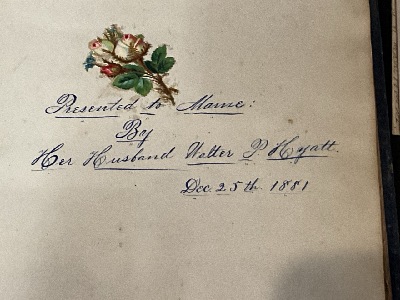 Presented to Mame:
By
Her Husband Walter P. Hyatt.
Dec. 25th 1881